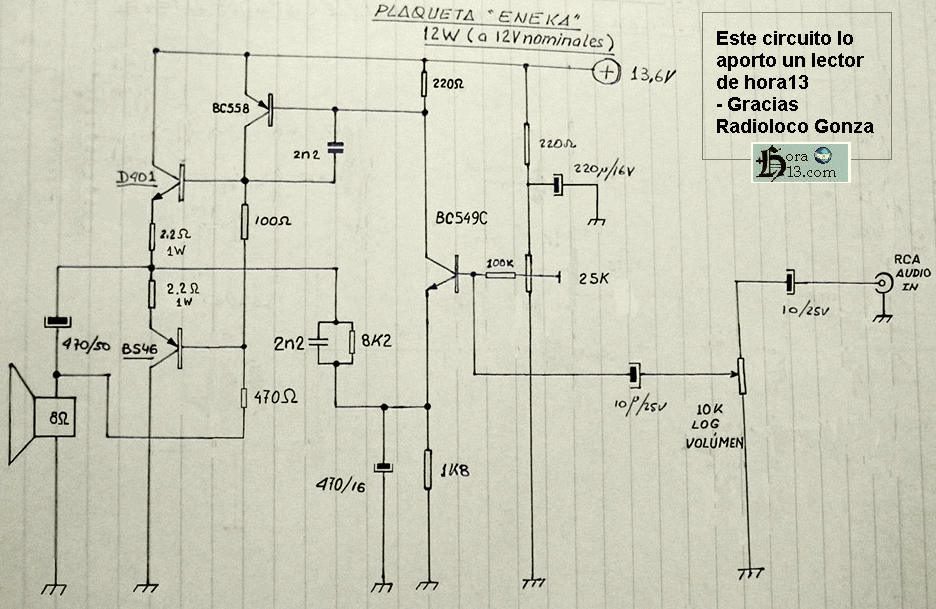 PLAQUETA "ENEKA"
12W (a 12V nominales)
Este circuito lo
aporto un lector
de hora13
- Gracias
Radioloco Gonza
Hora
13.com
+ 13,6V
BC558
220Ω
2n2
220Ω
220µ/16V
D401
100Ω
BC549C
2.2Ω
1W
100K
25K
RCA
AUDIO
IN
2.2Ω
1W
10/25V
470/50
B546
2n2
8K2
8Ω
470Ω
10µ/25V
10K
LOG
VOLÚMEN
470/16
1K8